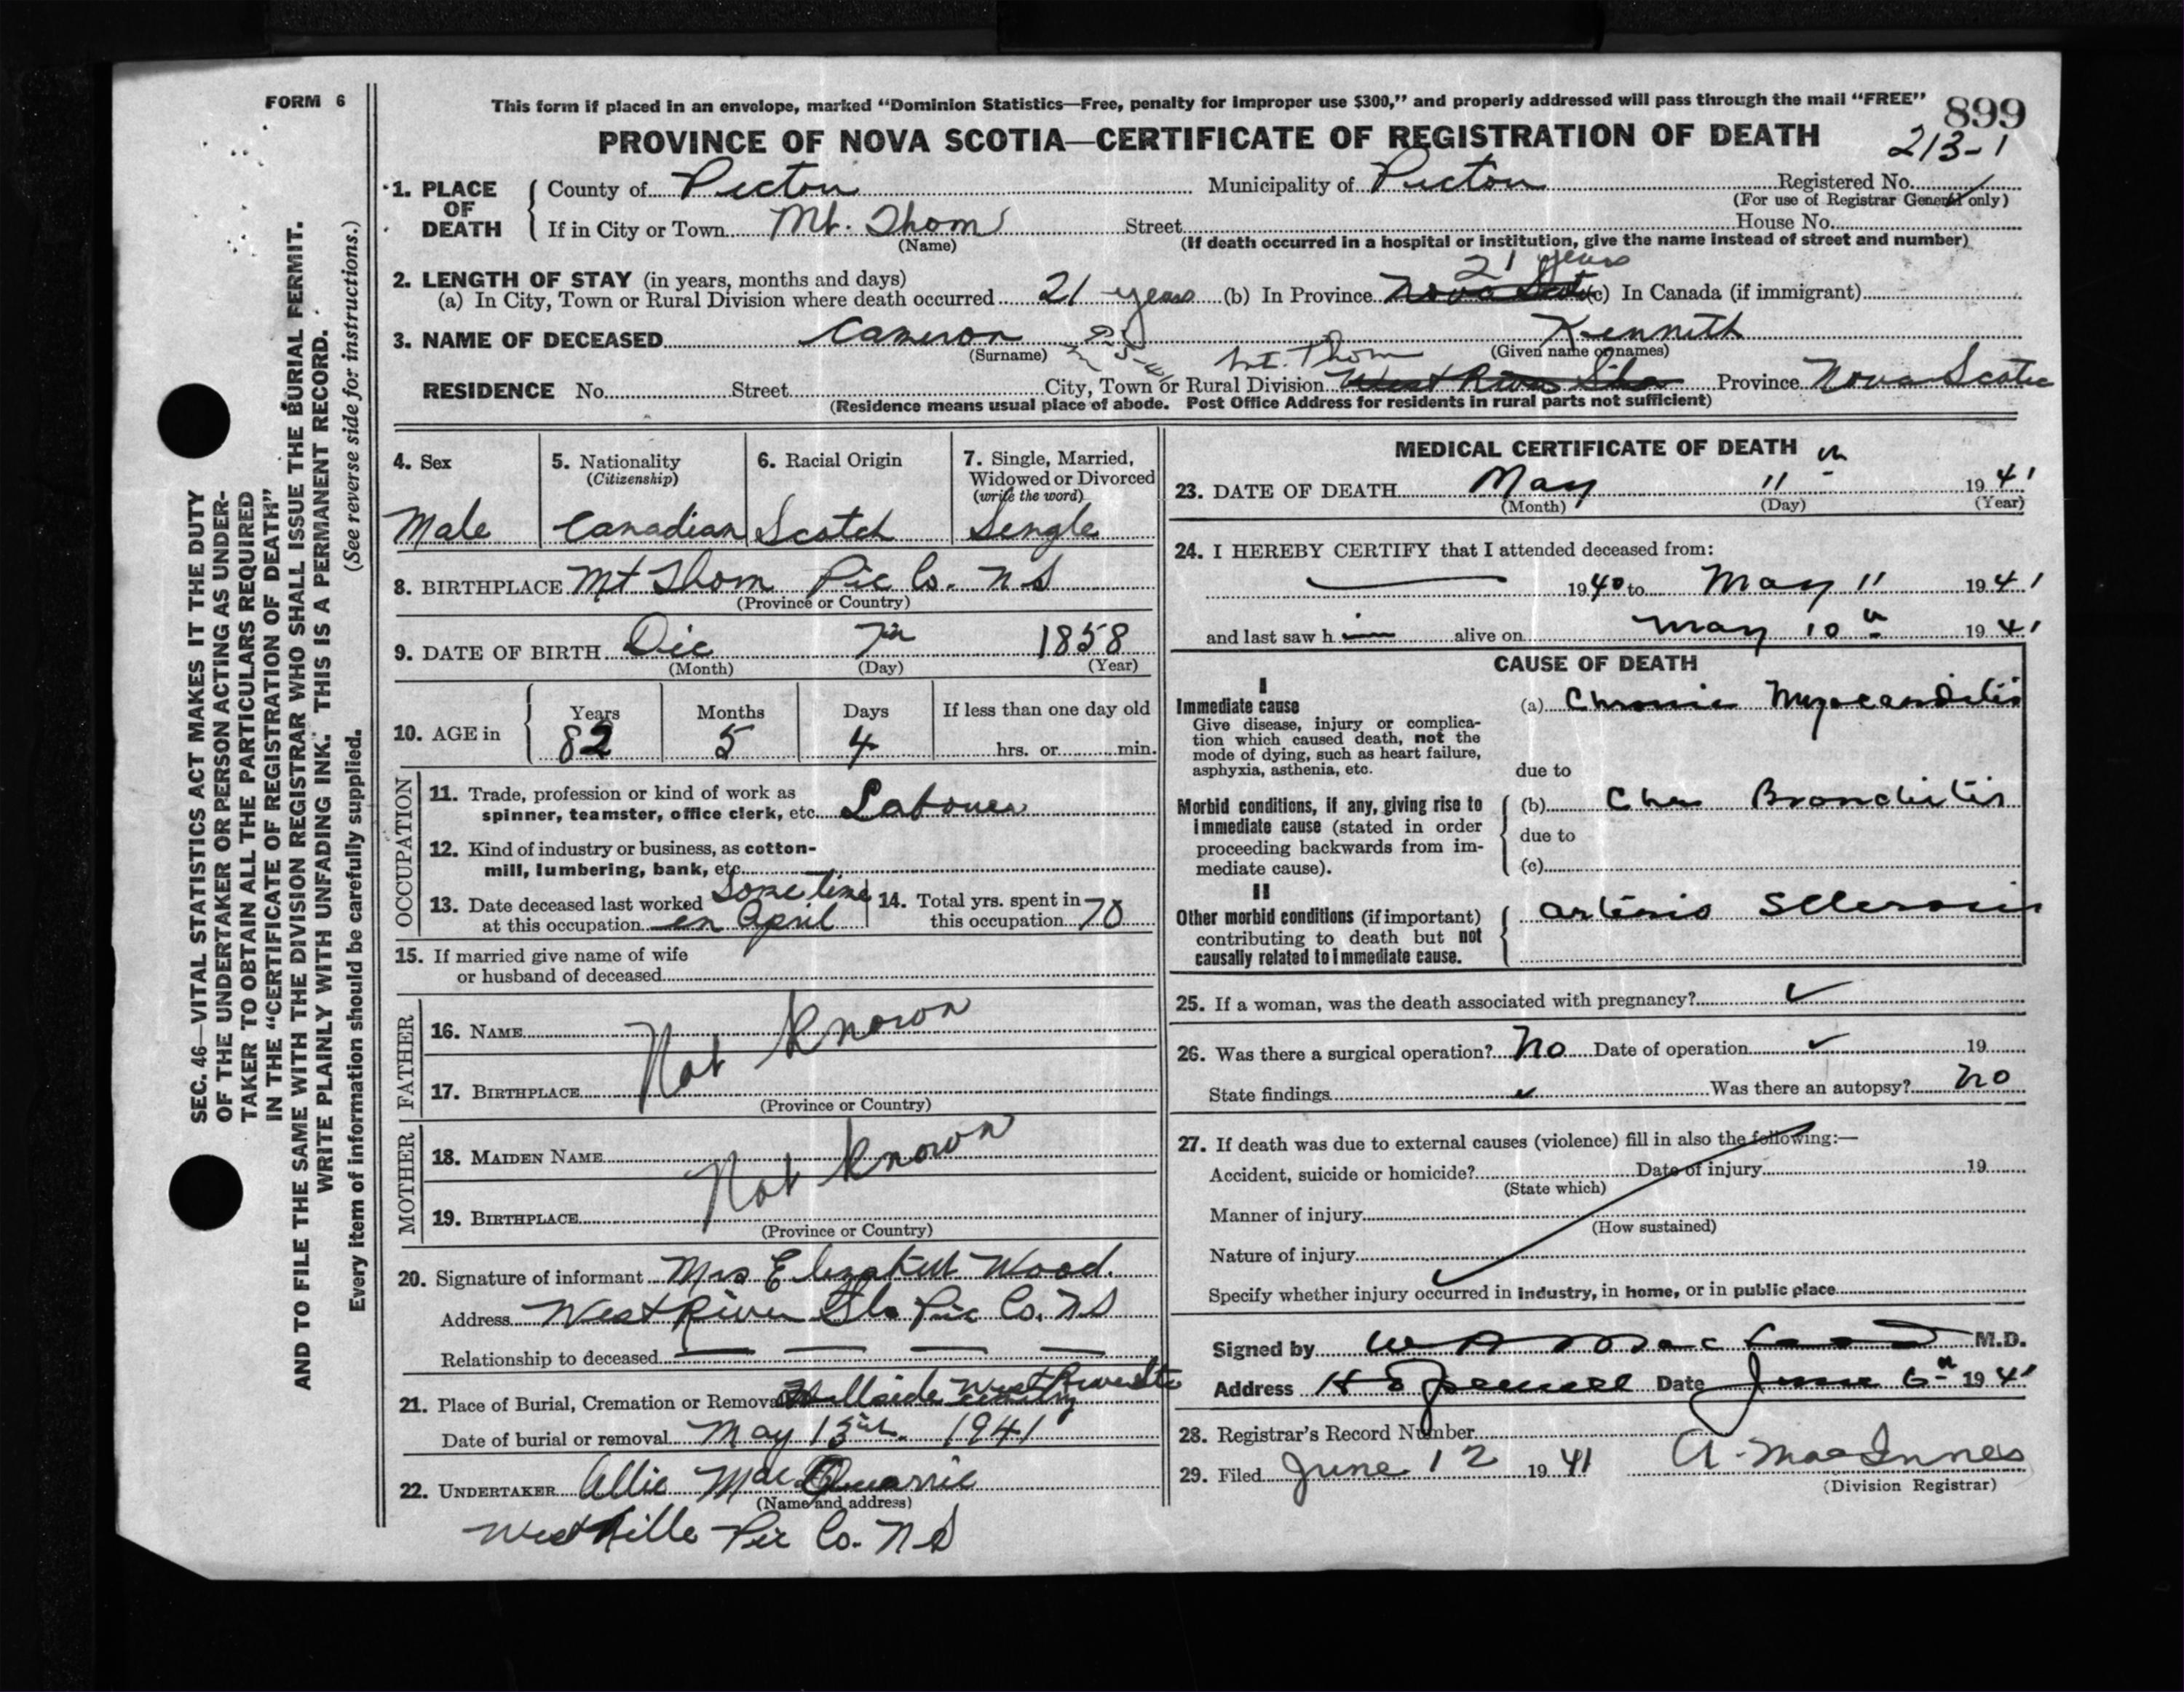 FORM 6
This form if placed in an envelope, marked "Dominion Statistics—Free, penalty for improper use $300," and properly addressed will pass through the mail "FREE"
899
PROVINCE OF NOVA SCOTIA—CERTIFICATE OF REGISTRATION OF DEATH
213-1
1. PLACE OF DEATH
County of Pictou Municipality of Pictou Registered No.
(For use of Registrar General only)
If in City or Town Mt. Thom Street House No.
(Name) (If death occurred in a hospital or institution, give the name instead of street and number)
2. LENGTH OF STAY (in years, months and days)
21 years
(a) In City, Town or Rural Division where death occurred 21 years (b) In Province Nova Scotia (c) In Canada (if immigrant)
3. NAME OF DECEASED Cameron Kenneth
(Surname) (Given name or names)
Mt. Thom
RESIDENCE No. Street City, Town or Rural Division West River Sta Province Nova Scotia
(Residence means usual place of abode. Post Office Address for residents in rural parts not sufficient)
SEC. 46—VITAL STATISTICS ACT MAKES IT THE DUTY
OF THE UNDERTAKER OR PERSON ACTING AS UNDER-
TAKER TO OBTAIN ALL THE PARTICULARS REQUIRED
IN THE "CERTIFICATE OF REGISTRATION OF DEATH"
AND TO FILE THE SAME WITH THE DIVISION REGISTRAR WHO SHALL ISSUE THE BURIAL PERMIT.
WRITE PLAINLY WITH UNFADING INK. THIS IS A PERMANENT RECORD.
Every item of information should be carefully supplied. (See reverse side for instructions.)
4. Sex
Male
5. Nationality
(Citizenship)
Canadian
6. Racial Origin
Scotch
7. Single, Married,
Widowed or Divorced
(write the word)
Single
8. BIRTHPLACE Mt Thom Pic Co. N S
(Province or Country)
9. DATE OF BIRTH Dec 7th 1858
(Month) (Day) (Year)
10. AGE in
Years Months Days If less than one day old
82 5 4 hrs. or min.
OCCUPATION
11. Trade, profession or kind of work as
spinner, teamster, office clerk, etc. Labourer
12. Kind of industry or business, as cotton-
mill, lumbering, bank, etc.
13. Date deceased last worked Some time
at this occupation in April
14. Total yrs. spent in
this occupation 70
15. If married give name of wife
or husband of deceased
FATHER
16. NAME
Not Known
17. BIRTHPLACE
(Province or Country)
MOTHER
18. MAIDEN NAME
Not Known
19. BIRTHPLACE
(Province or Country)
20. Signature of informant Mrs Elizabeth Wood
Address West River Sta Pic Co. N S
Relationship to deceased
21. Place of Burial, Cremation or Removal Hillside Cemetery West River Sta
Date of burial or removal May 13th 1941
22. UNDERTAKER Allie MacQuarrie
(Name and address)
Westville Pic Co. N S
MEDICAL CERTIFICATE OF DEATH
23. DATE OF DEATH May 11th 1941
(Month) (Day) (Year)
24. I HEREBY CERTIFY that I attended deceased from:
1940 to May 11 1941
and last saw him alive on May 10th 1941
CAUSE OF DEATH
I
Immediate cause
Give disease, injury or complica-
tion which caused death, not the
mode of dying, such as heart failure,
asphyxia, asthenia, etc.
(a) Chronic Myocarditis
due to
Morbid conditions, if any, giving rise to
immediate cause (stated in order
proceeding backwards from im-
mediate cause).
(b) Chr Bronchitis
due to
(c)
II
Other morbid conditions (if important)
contributing to death but not
causally related to immediate cause.
arterio Sclerosis
25. If a woman, was the death associated with pregnancy? ✓
26. Was there a surgical operation? No Date of operation ✓ 19
State findings ✓ Was there an autopsy? No
27. If death was due to external causes (violence) fill in also the following:—
Accident, suicide or homicide? Date of injury 19
(State which)
Manner of injury
(How sustained)
Nature of injury
Specify whether injury occurred in industry, in home, or in public place
Signed by M.D.
Address Date June 6th 1941
28. Registrar's Record Number
29. Filed June 12 1941 A. MacInnes
(Division Registrar)